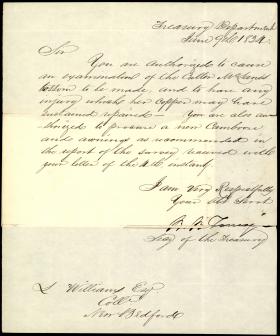 Treasury Department
June 9th 1834.
Sir
You are authorized to cause
an examination of the Cutter McLane's
bottom to be made, and to have any
injury which her copper may have
sustained repaired — You are also au-
thorized to procure a new Camboose
and awnings as recommended in
the report of the survey received with
your letter of the 4th instant.
I am Very Respectfully
Your Obt Servt
R. B. Taney
Secy of the Treasury
Williams Esq
Collr
New Bedford